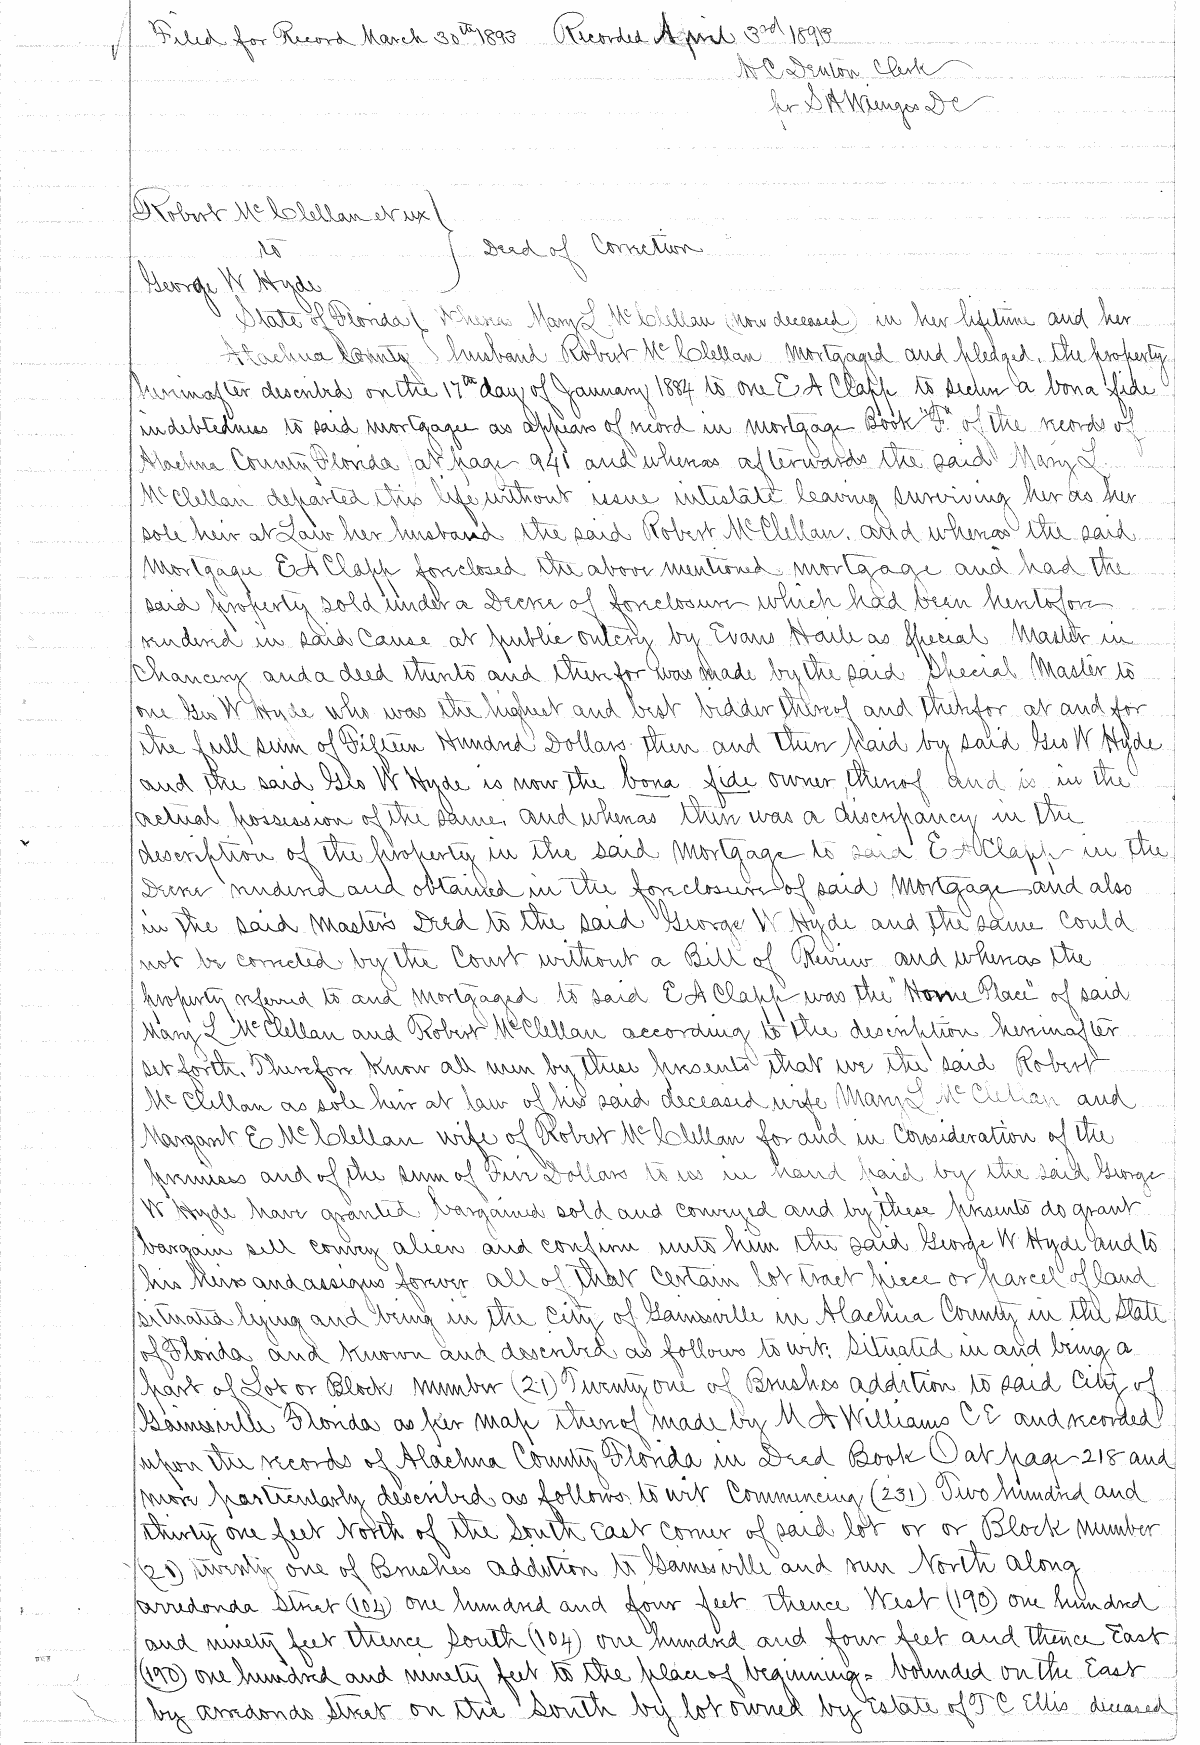 Filed for Record March 30th 1893 Recorded April 3rd 1893
H C Denton Clerk
for S H Wienges DC
Robert McClellan et ux
to
Deed of Correction
George W Hyde
State of Florida Whereas Mary L McClellan (now deceased) in her lifetime and her
Alachua County husband Robert McClellan Mortgaged and pledged, the property
hereinafter described on the 17th day of January 1884 to one E A Clapp to secure a bona fide
indebtedness to said mortgagee as appears of record in mortgage Book "F" of the records of
Alachua County Florida at page 941 and whereas afterwards the said Mary L
McClellan departed this life without issue intestate leaving surviving her as her
sole heir at Law her husband the said Robert McClellan. and whereas the said
Mortgagee E A Clapp foreclosed the above mentioned mortgage and had the
said property sold under a Decree of foreclosure which had been heretofore
rendered in said Cause at public outcry by Evans Haile as Special Master in
Chancery and a deed thereto and therefor was made by the said Special Master to
one Geo W Hyde who was the highest and best bidder thereof and therefor at and for
the full sum of Fifteen Hundred Dollars then and there paid by said Geo W Hyde
and the said Geo W Hyde is now the bona fide owner thereof and is in the
actual possession of the same, and whereas there was a discrepancy in the
description of the property in the said Mortgage to said E A Clapp in the
Decree rendered and obtained in the foreclosure of said Mortgage and also
in the said Master's Deed to the said George W Hyde and the same could
not be corrected by the Court without a Bill of Review and whereas the
property referred to and Mortgaged to said E A Clapp was the "Home Place" of said
Mary L McClellan and Robert McClellan according to the description hereinafter
set forth. Therefore Know all men by these presents that we the said Robert
McClellan as sole heir at law of his said deceased wife Mary L McClellan and
Margaret E McClellan wife of Robert McClellan for and in Consideration of the
premises and of the sum of Five Dollars to us in hand paid by the said George
W Hyde have granted bargained sold and conveyed and by these presents do grant
bargain sell convey alien and confirm unto him the said George W Hyde and to
his heirs and assigns forever all of that Certain lot tract piece or parcel of land
situated lying and being in the City of Gainesville in Alachua County in the State
of Florida and Known and described as follows to wit: Situated in and being a
part of Lot or Block Number (21) Twenty one of Brushes addition to said City of
Gainesville Florida as per map thereof made by M A Williams C E and recorded
upon the records of Alachua County Florida in Deed Book O at page 218 and
more particularly described as follows to wit Commencing (231) Two hundred and
thirty one feet North of the South East corner of said lot or or Block Number
(21) twenty one of Brushes addition to Gainesville and run North along
arredonda Street (104) one hundred and four feet thence West (190) one hundred
and ninety feet thence South (104) one hundred and four feet and thence East
(190) one hundred and ninety feet to the place of beginning = bounded on the East
by arredondo Street on the South by lot owned by Estate of T C Ellis deceased